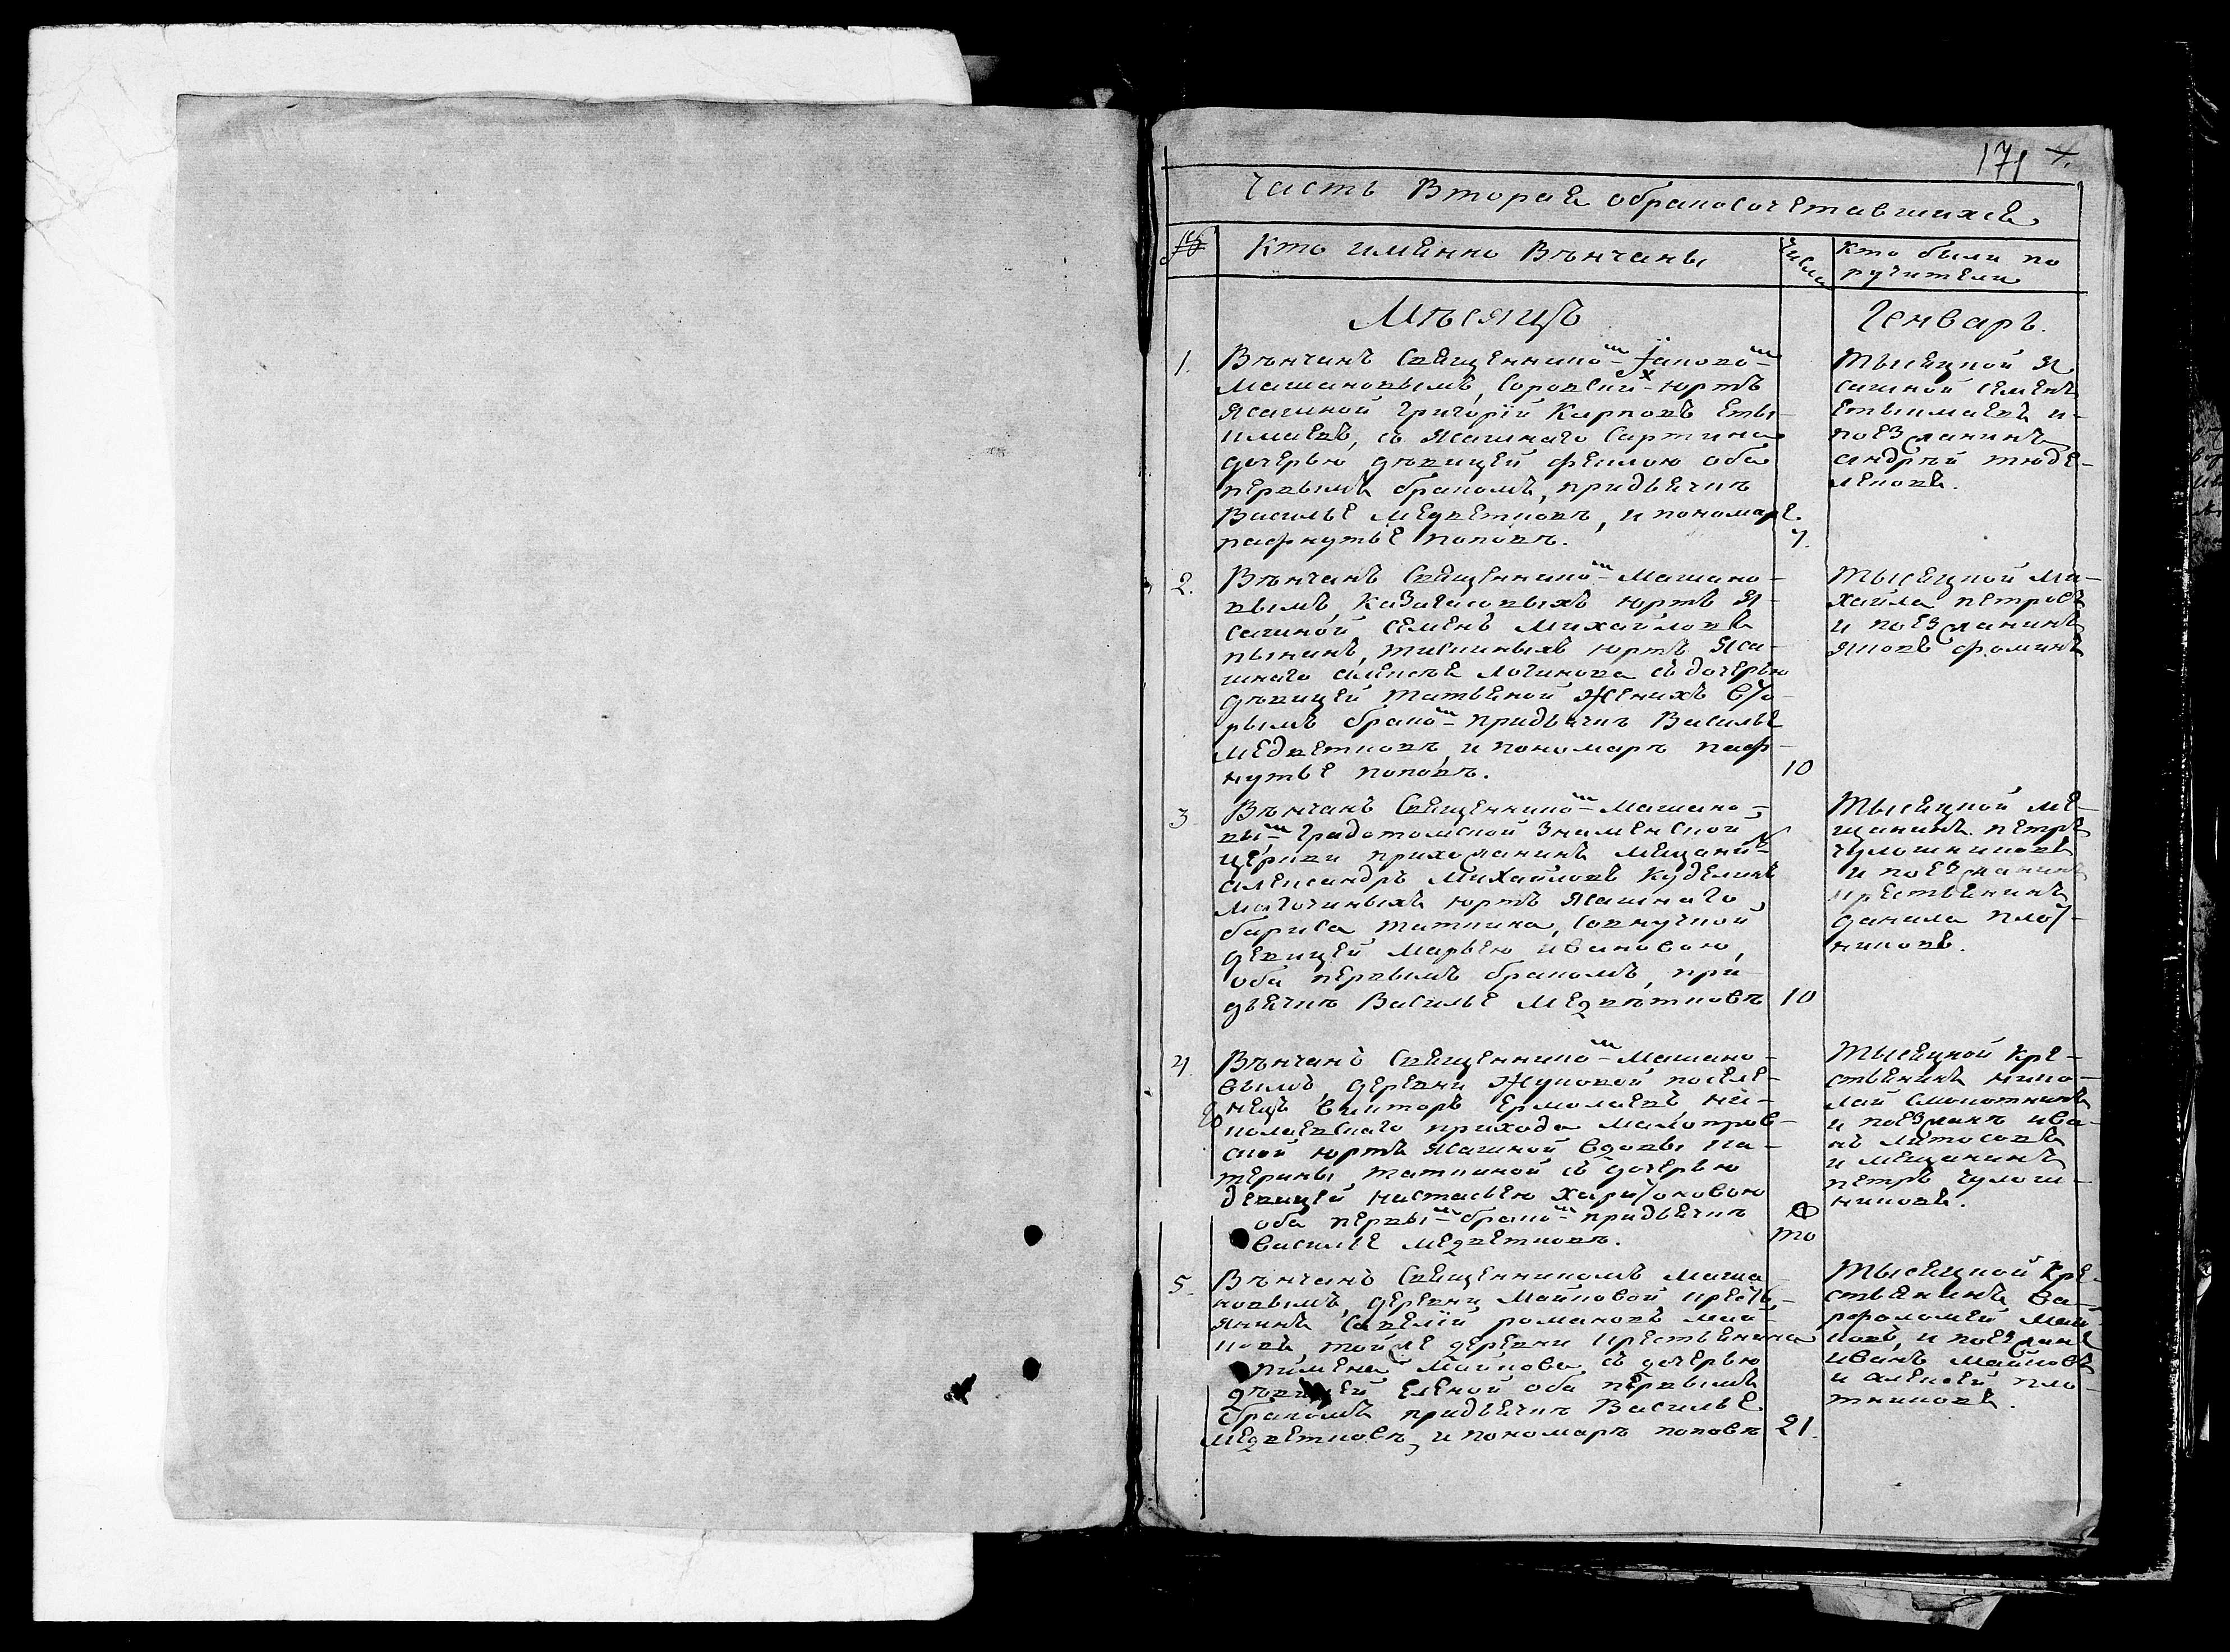 171 4.
Часть Вторая обракосочетавшихся
№ Кто имянно Вѣнчаны Числа Кто были по
ручители
Мѣсяцъ Генварь.
1. Вѣнчанъ Священнико^м Іаково^м
Машановымъ, юртъ
Ясашной Григорій Карповъ Еты-
кмаевъ, съ Ясашнаго Сартина
дочерью дѣвицей Феклою оба
первымъ бракомъ, придьячкѣ
Василье Медветковѣ, и пономаре
Пафнутье поповѣ. 7.
Тысяцкой Я
сашной Семенъ
Етыкмаевъ и
поезжанинъ
андрѣй тюде-
лековъ.
2. Вѣнчанъ Священнико^м Машано-
вымъ, юртъ Я-
сашной Семенъ Михайловъ
юртъ Яса-
шнаго алексѣя логинова съ дочерью
дѣвицей Татьяной Женихъ вто-
рымъ брако^м придьячкѣ Василье
Медветковѣ, и пономарѣ паф-
нутье поповѣ. 10
Тысяцкой Ми-
хайла петровъ
и поезжанинъ
яковъ фоминъ
3 Вѣнчанъ Священнико^м Машано-
вы^м Градотомской Знаменской
церкви прихожанинъ Мещани^н
александръ Михайловъ Куделинъ
юртъ Ясашнаго
бариса таткина, совнучкой
девицей Марьею ивановою,
оба первымъ бракомъ, при
дьячкѣ Василье Медвѣтковѣ 10
Тысяцкой ме-
щанинъ петръ
чулошниковъ
и поезжанинъ
крестьянинъ
данила плот-
никовъ.
4. Вѣнчанъ Священнико^м Машано-
вымъ, деревни Жуковой поселе-
нецъ викторъ Ермолаевъ ни-
колаевскаго прихода
юртъ ясашной вдовы ка-
терины таткиной съ дочерью
девицей настасьею харитоновою
оба первы^м брако^м придьячкѣ
Василье медветковѣ. то
Тысяцкой Кре-
стьянинъ нико-
лай
и поезжанъ ива-
нъ
и мещанинъ
петръ чулош-
никовъ.
5. Вѣнчанъ Священникомъ Маша-
новымъ, деревни Майковой кресть-
янинъ Савелій романовъ май-
ковъ, тойже деревни крестьянина
пимена Майкова съ дочерью
дѣвицей Еленой оба первымъ
бракомъ придьячкѣ Василье
медветковѣ, и пономарѣ поповѣ 21.
Тысяцкой Кре-
стьянинъ Ва-
рфоломей май-
ковъ, и поезжане
иванъ майковъ
и алексей пло-
тниковъ.